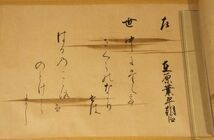 左
在原業平朝臣
世中にたえて
さくらのなかり
せは
はるのこゝろは
のとけから
まし